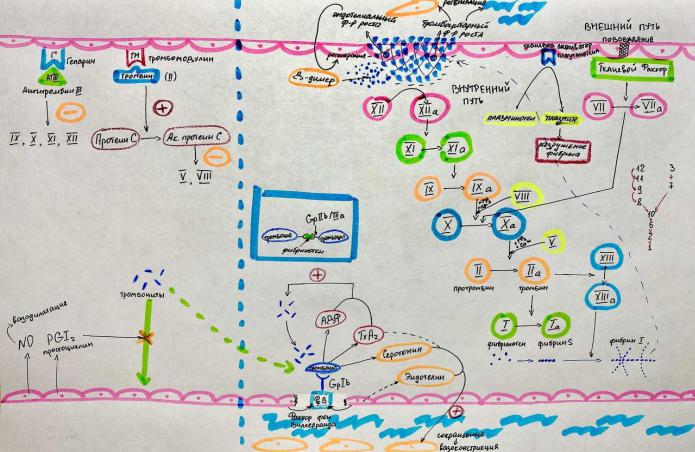 эндотелиальный
ф-р роста
регенерация
Тромбоцитарный
ф-р роста
регенерация
Д-димер
ВНЕШНИЙ ПУТЬ
повреждение
Тканевой Фактор
VII
VIIa
Г
Гепарин
АТIII
Антитромбин III
IX, X, XI, XII
ТМ
Тромбомодулин
Тромбин
(II)
Протеин С
Ак. протеин С
V, VIII
ВНУТРЕННИЙ
ПУТЬ
XII
XIIa
XI
XIa
IX
IXa
VIII
X
Xa
V
II
IIa
протромбин
тромбин
XIII
XIIIa
I
Ia
фибриноген
фибрин S
фибрин I
тканевой активатор
плазминогена
плазминоген
плазмин
разрушение
фибрина
12
11
9
8
3
7
10
5
2
1
GpIIb/IIIa
тромбоцит
тромбоцит
фибриноген
тромбоциты
вазодилатация
NO
PGI₂
простациклин
АДФ
TxA₂
тромбоцит
GpIb
ФВ
Фактор фон
Виллебранда
Серотонин
Эндотелин
сокращение
вазоконстрикция